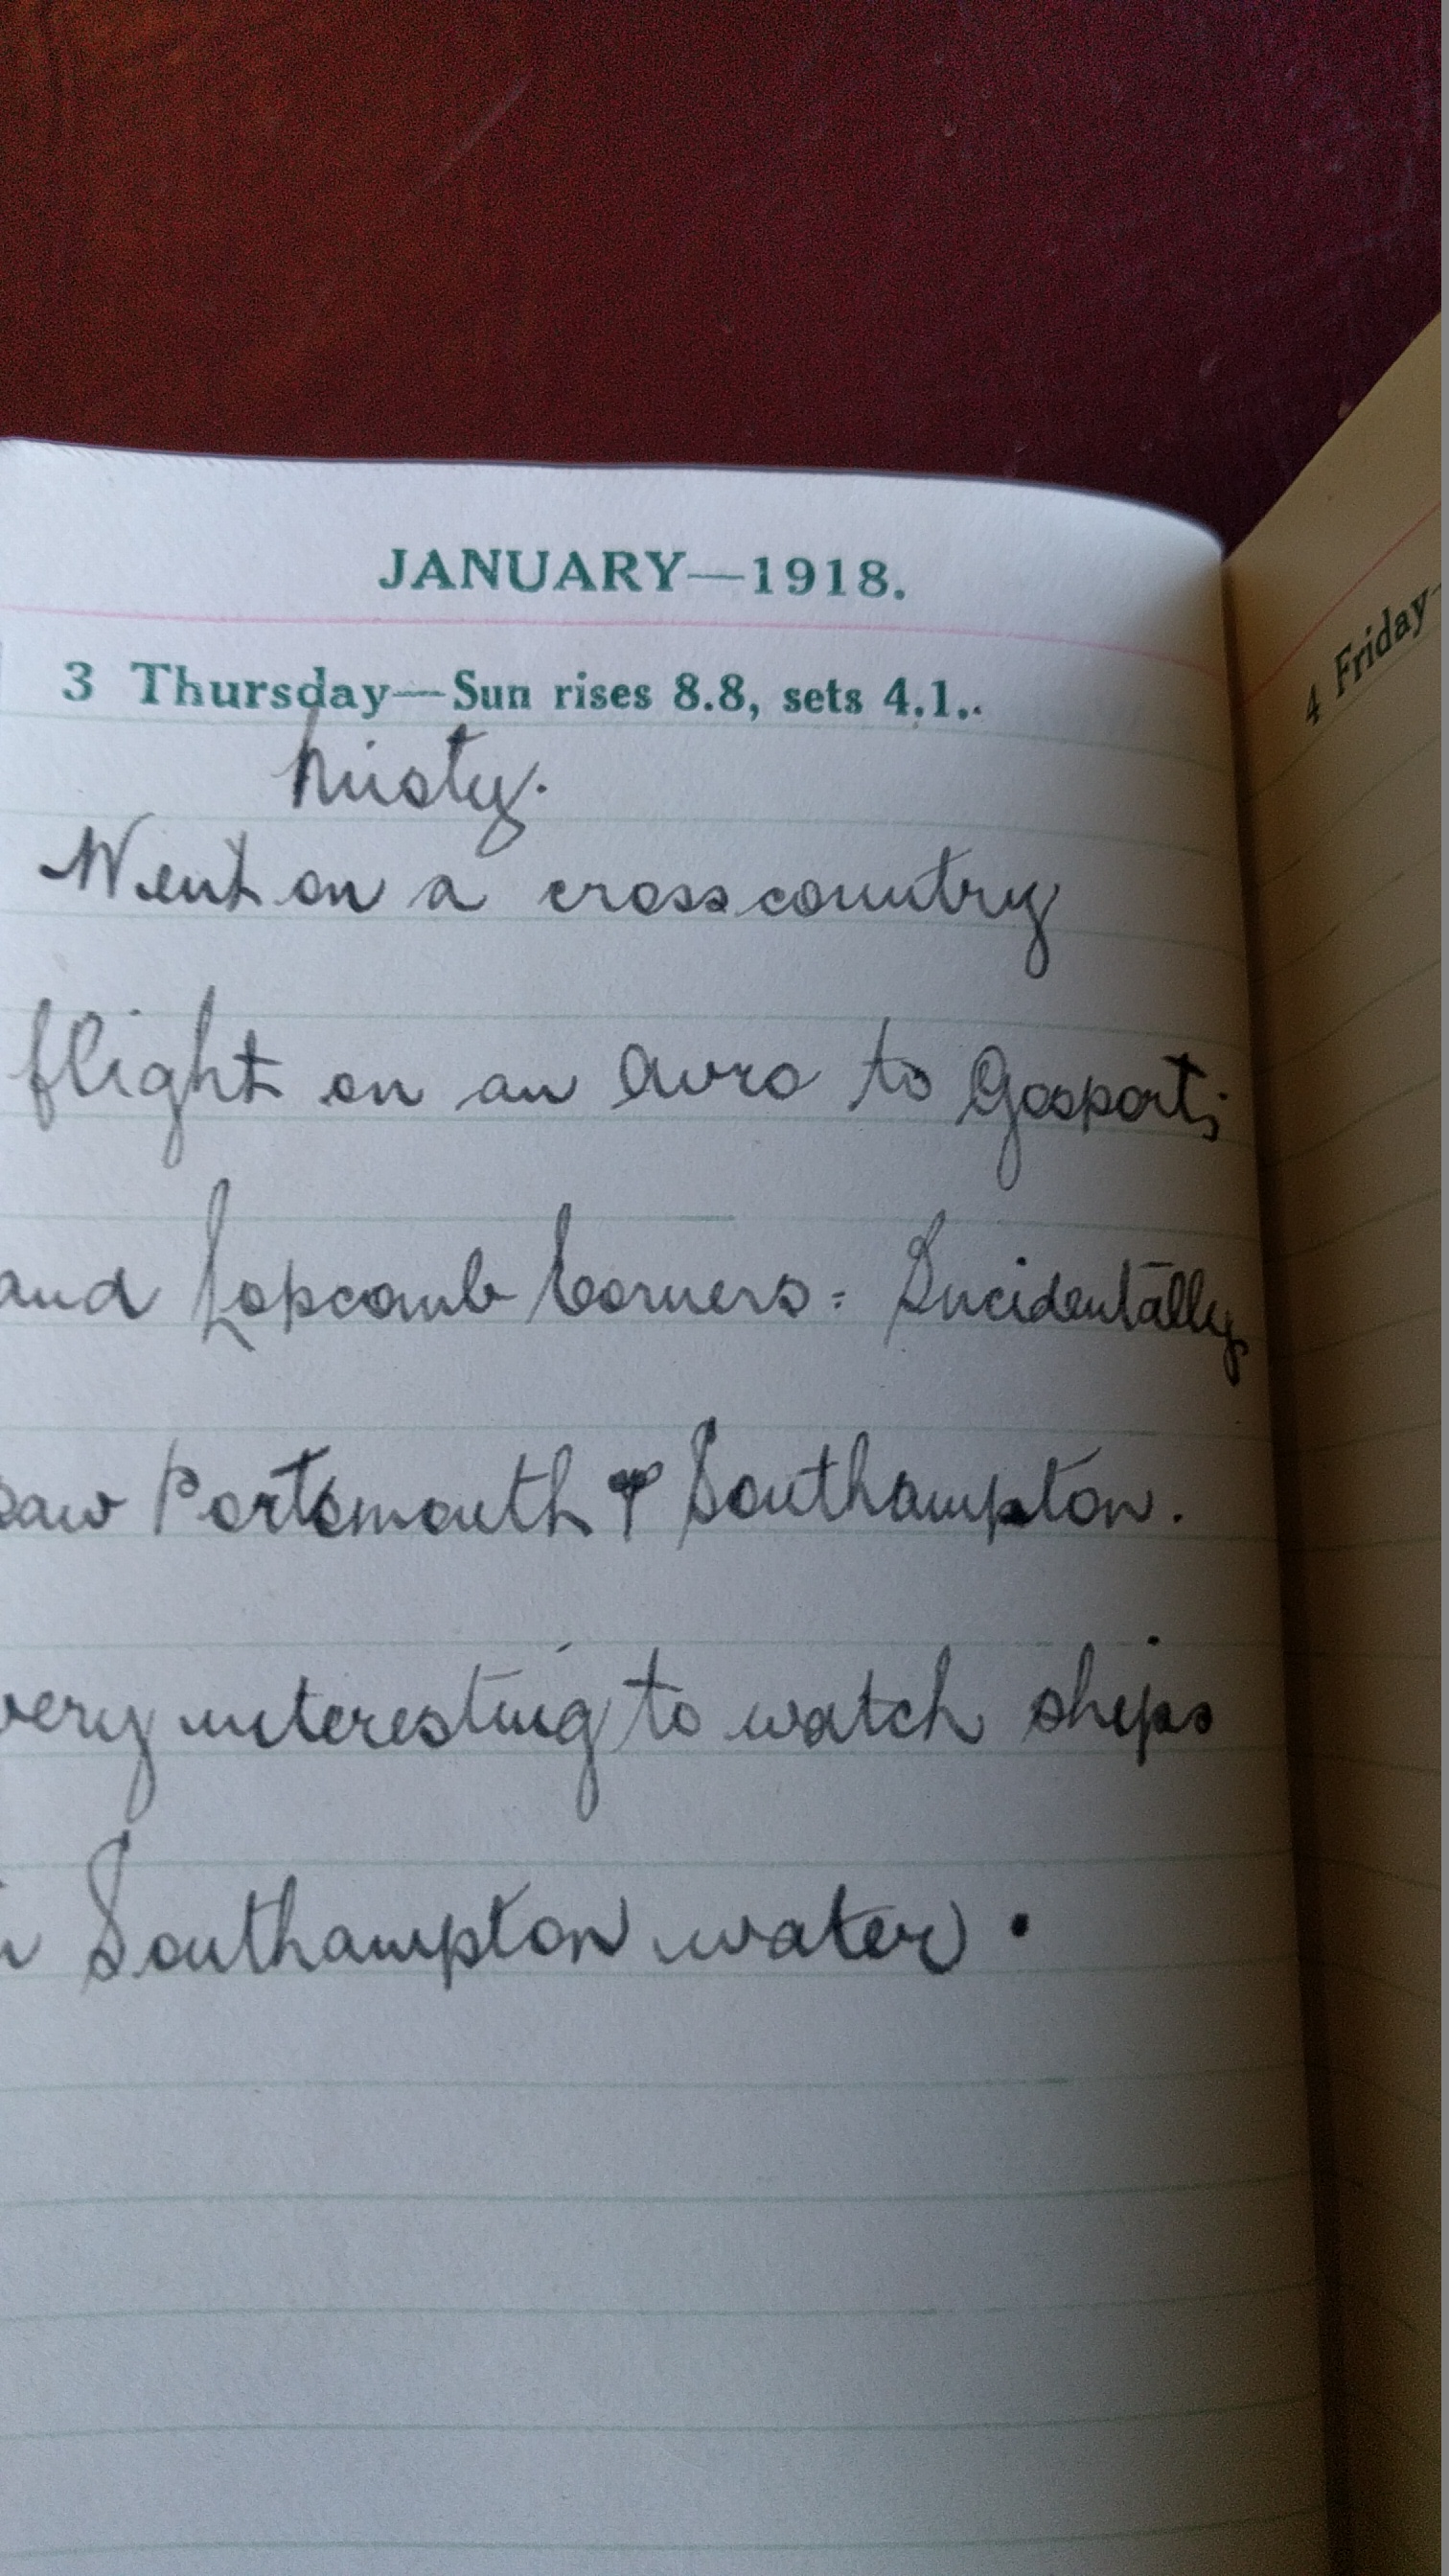 JANUARY—1918.
3 Thursday—Sun rises 8.8, sets 4.1..
4 Friday—
Misty.
Went on a cross country
flight on an Avro to Gosport;
and Lopcomb Corners: Incidentally
saw Portsmouth & Southampton.
very interesting to watch ships
Southampton water.